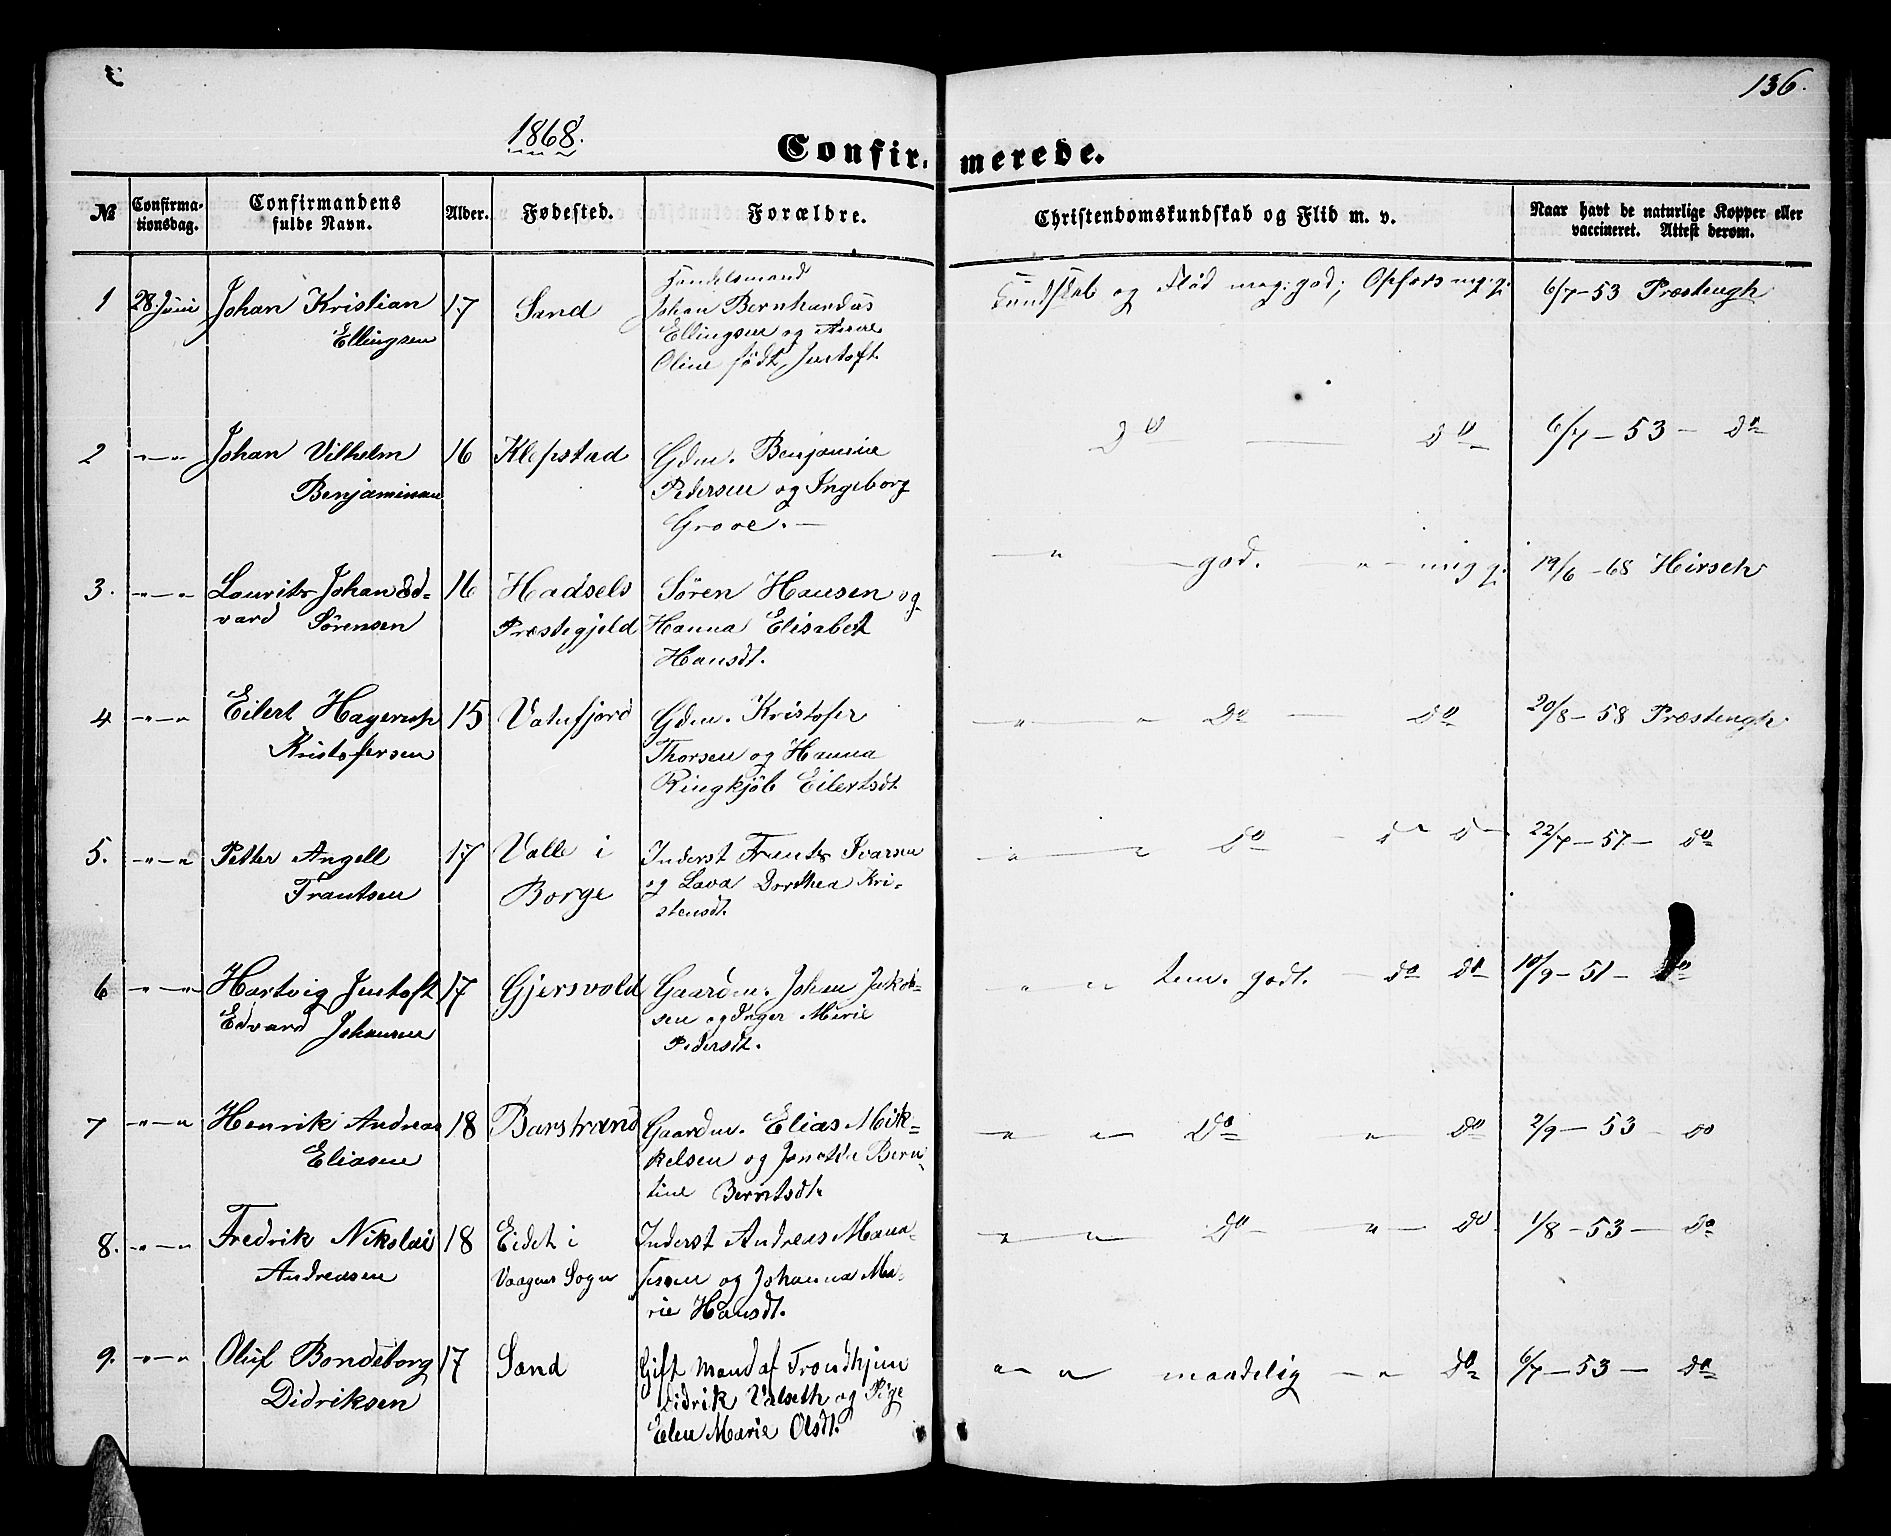 136.
1868.
Confirmerede.
№ Confirmationsdag. Confirmandens fulde Navn. Alder. Fødested. Forældre. Christendomskundskab og Flid m. v. Naar havt de naturlige Kopper eller vaccineret. Attest derom.
1 28 Juni Johan Kristian 17 Sand Handelsmand
Ellingsen Johan Bernhardus
Ellingsen og Anne
Oline født Jentoft.
Kundskab og Flid meg: god; Opførs mg. g. 6/7-53 Præstengh
2 -"-" Johan Vilhelm 16 Klepstad Gdm. Benjamin
Benjaminsen Pedersen og Ingeborg
Grove. —
Do — do 6/7 - 53 - do
3. -"-" Laurits Johan Ed- 16 Hadsels Søren Hansen og
vard Sørensen Præstegjeld Hanna Elisabet
Hansdt.
—" — god. —"— mg g. 19/6 -68 Hirsch
4 -"-" Eilert Hagerup 15 Vatnfjord Gdm. Kristofer
Kristofersen Thorsen og Hanna
Ringkjöb Eilertsdt.
" " Do — Do 20/8-58 Præstengh
5. -"-" Petter Angell 17 Valle i Inderst Frants Ivarsen
Frantsen Borge og Lava Dorthea Kri-
stensdt.
" " do — d d 22/7-57- do
6 -"-" Hartvig Jentoft 17 Gjersvold Gaardm. Johan Jakob-
Edvard Johansen sen og Inger Marie
Pedersdt.
" " tem. godt. — do do 10/9-51- do
7 -"-" Henrik Andreas 18 Barstrand Gaardm. Elias Mik-
Eliasen kelsen og Jonetta Bern-
tine Berntsdt.
" " Do " do 2/9-53- do
8. -"-" Fredrik Nikolai 18 Eidet i Inderst Andreas Mana-
Andreasen Vaagens Sogn sesen og Johanna Ma-
rie Hansdt.
" " do " do 1/8-53- do
9. -"-" Oluf Bondeborg 17 Sand Gift Mand af Trondhjem
Didriksen Didrik Valseth og Pige
Elen Marie Olsdt.
" " maadelig " do 6/7-53- do